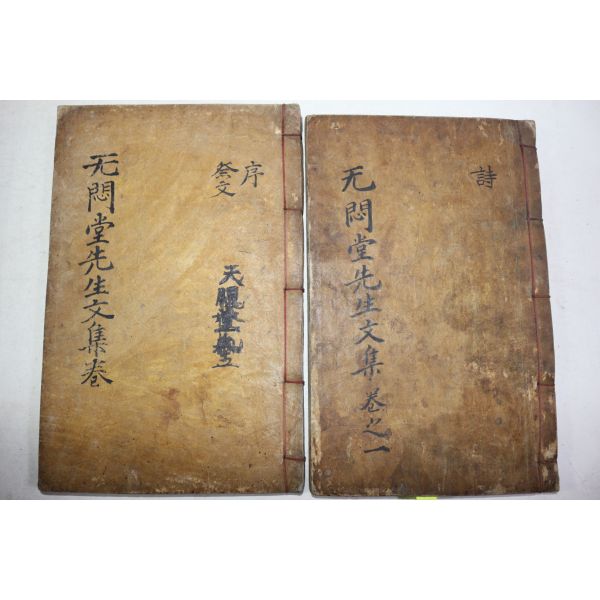 无悶堂先生文集卷
序
祭文
无悶堂先生文集卷之一
詩